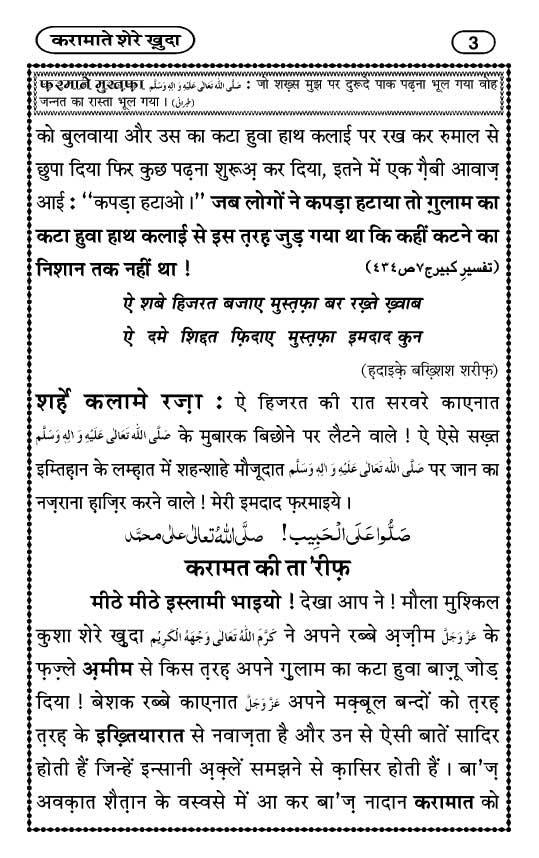 करामाते शेरे ख़ुदा
3
फ़रमाने मुस्तफ़ा صَلَّى اللهُ تَعَالٰى عَلَيْهِ وَاٰلِهٖ وَسَلَّم : जो शख़्स मुझ पर दुरूदे पाक पढ़ना भूल गया वोह
जन्नत का रास्ता भूल गया । (طبرانی)
को बुलवाया और उस का कटा हुवा हाथ कलाई पर रख कर रुमाल से
छुपा दिया फिर कुछ पढ़ना शुरूअ़ कर दिया, इतने में एक ग़ैबी आवाज़
आई : “कपड़ा हटाओ ।” जब लोगों ने कपड़ा हटाया तो ग़ुलाम का
कटा हुवा हाथ कलाई से इस त़रह़ जुड़ गया था कि कहीं कटने का
निशान तक नहीं था ! (تفسیرِ کبیر ج۷ ص۴۳۴)
ऐ शबे हिजरत बजाए मुस्त़फ़ा बर रख़्ते ख़्वाब
ऐ दमे शिद्दत फ़िदाए मुस्त़फ़ा इमदाद कुन
(ह़दाइक़े बख़्शिश शरीफ़)
शर्ह़े कलामे रज़ा : ऐ हिजरत की रात सरवरे काएनात
صَلَّى اللهُ تَعَالٰى عَلَيْهِ وَاٰلِهٖ وَسَلَّم के मुबारक बिछोने पर लैटने वाले ! ऐ ऐसे सख़्त
इम्तिह़ान के लम्ह़ात में शहन्शाहे मौजूदात صَلَّى اللهُ تَعَالٰى عَلَيْهِ وَاٰلِهٖ وَسَلَّم पर जान का
नज़राना ह़ाज़िर करने वाले ! मेरी इमदाद फ़रमाइये ।
صَلُّوْا عَلَى الْحَبِيْب! صلَّى اللهُ تعالٰى على محمَّد
करामत की ता'रीफ़
मीठे मीठे इस्लामी भाइयो ! देखा आप ने ! मौला मुश्किल
कुशा शेरे ख़ुदा كَرَّمَ اللهُ تَعَالٰى وَجْهَهُ الْكَرِيْم ने अपने रब्बे अ़ज़ीम عَزَّوَجَلَّ के
फ़ज़्ले अ़मीम से किस त़रह़ अपने ग़ुलाम का कटा हुवा बाज़ू जोड़
दिया ! बेशक रब्बे काएनात عَزَّوَجَلَّ अपने मक़्बूल बन्दों को त़रह़
त़रह़ के इख़्तियारात से नवाज़ता है और उन से ऐसी बातें सादिर
होती हैं जिन्हें इन्सानी अ़क़्लें समझने से क़ासिर होती हैं । बा'ज़
अवक़ात शैत़ान के वस्वसे में आ कर बा'ज़ नादान करामात को